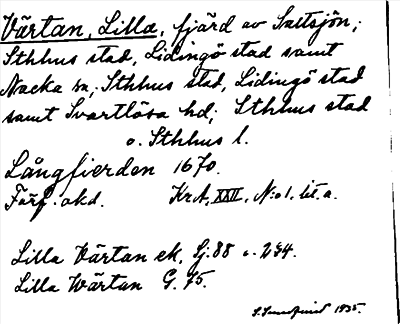 Värtan, Lilla, fjärd av Saltsjön;
Sthlms stad, Lidingö stad samt
Nacka sn; Sthlms stad, Lidingö stad
samt Svartlösa hd; Sthlms stad
o. Sthlms l.
Långfierden 1670.
Förf. okd. KrA, XXII, N:o 1, lit. a.
Lilla Värtan ek, Sj. 88 o. 234.
Lilla Wärtan G. 75.
1935.